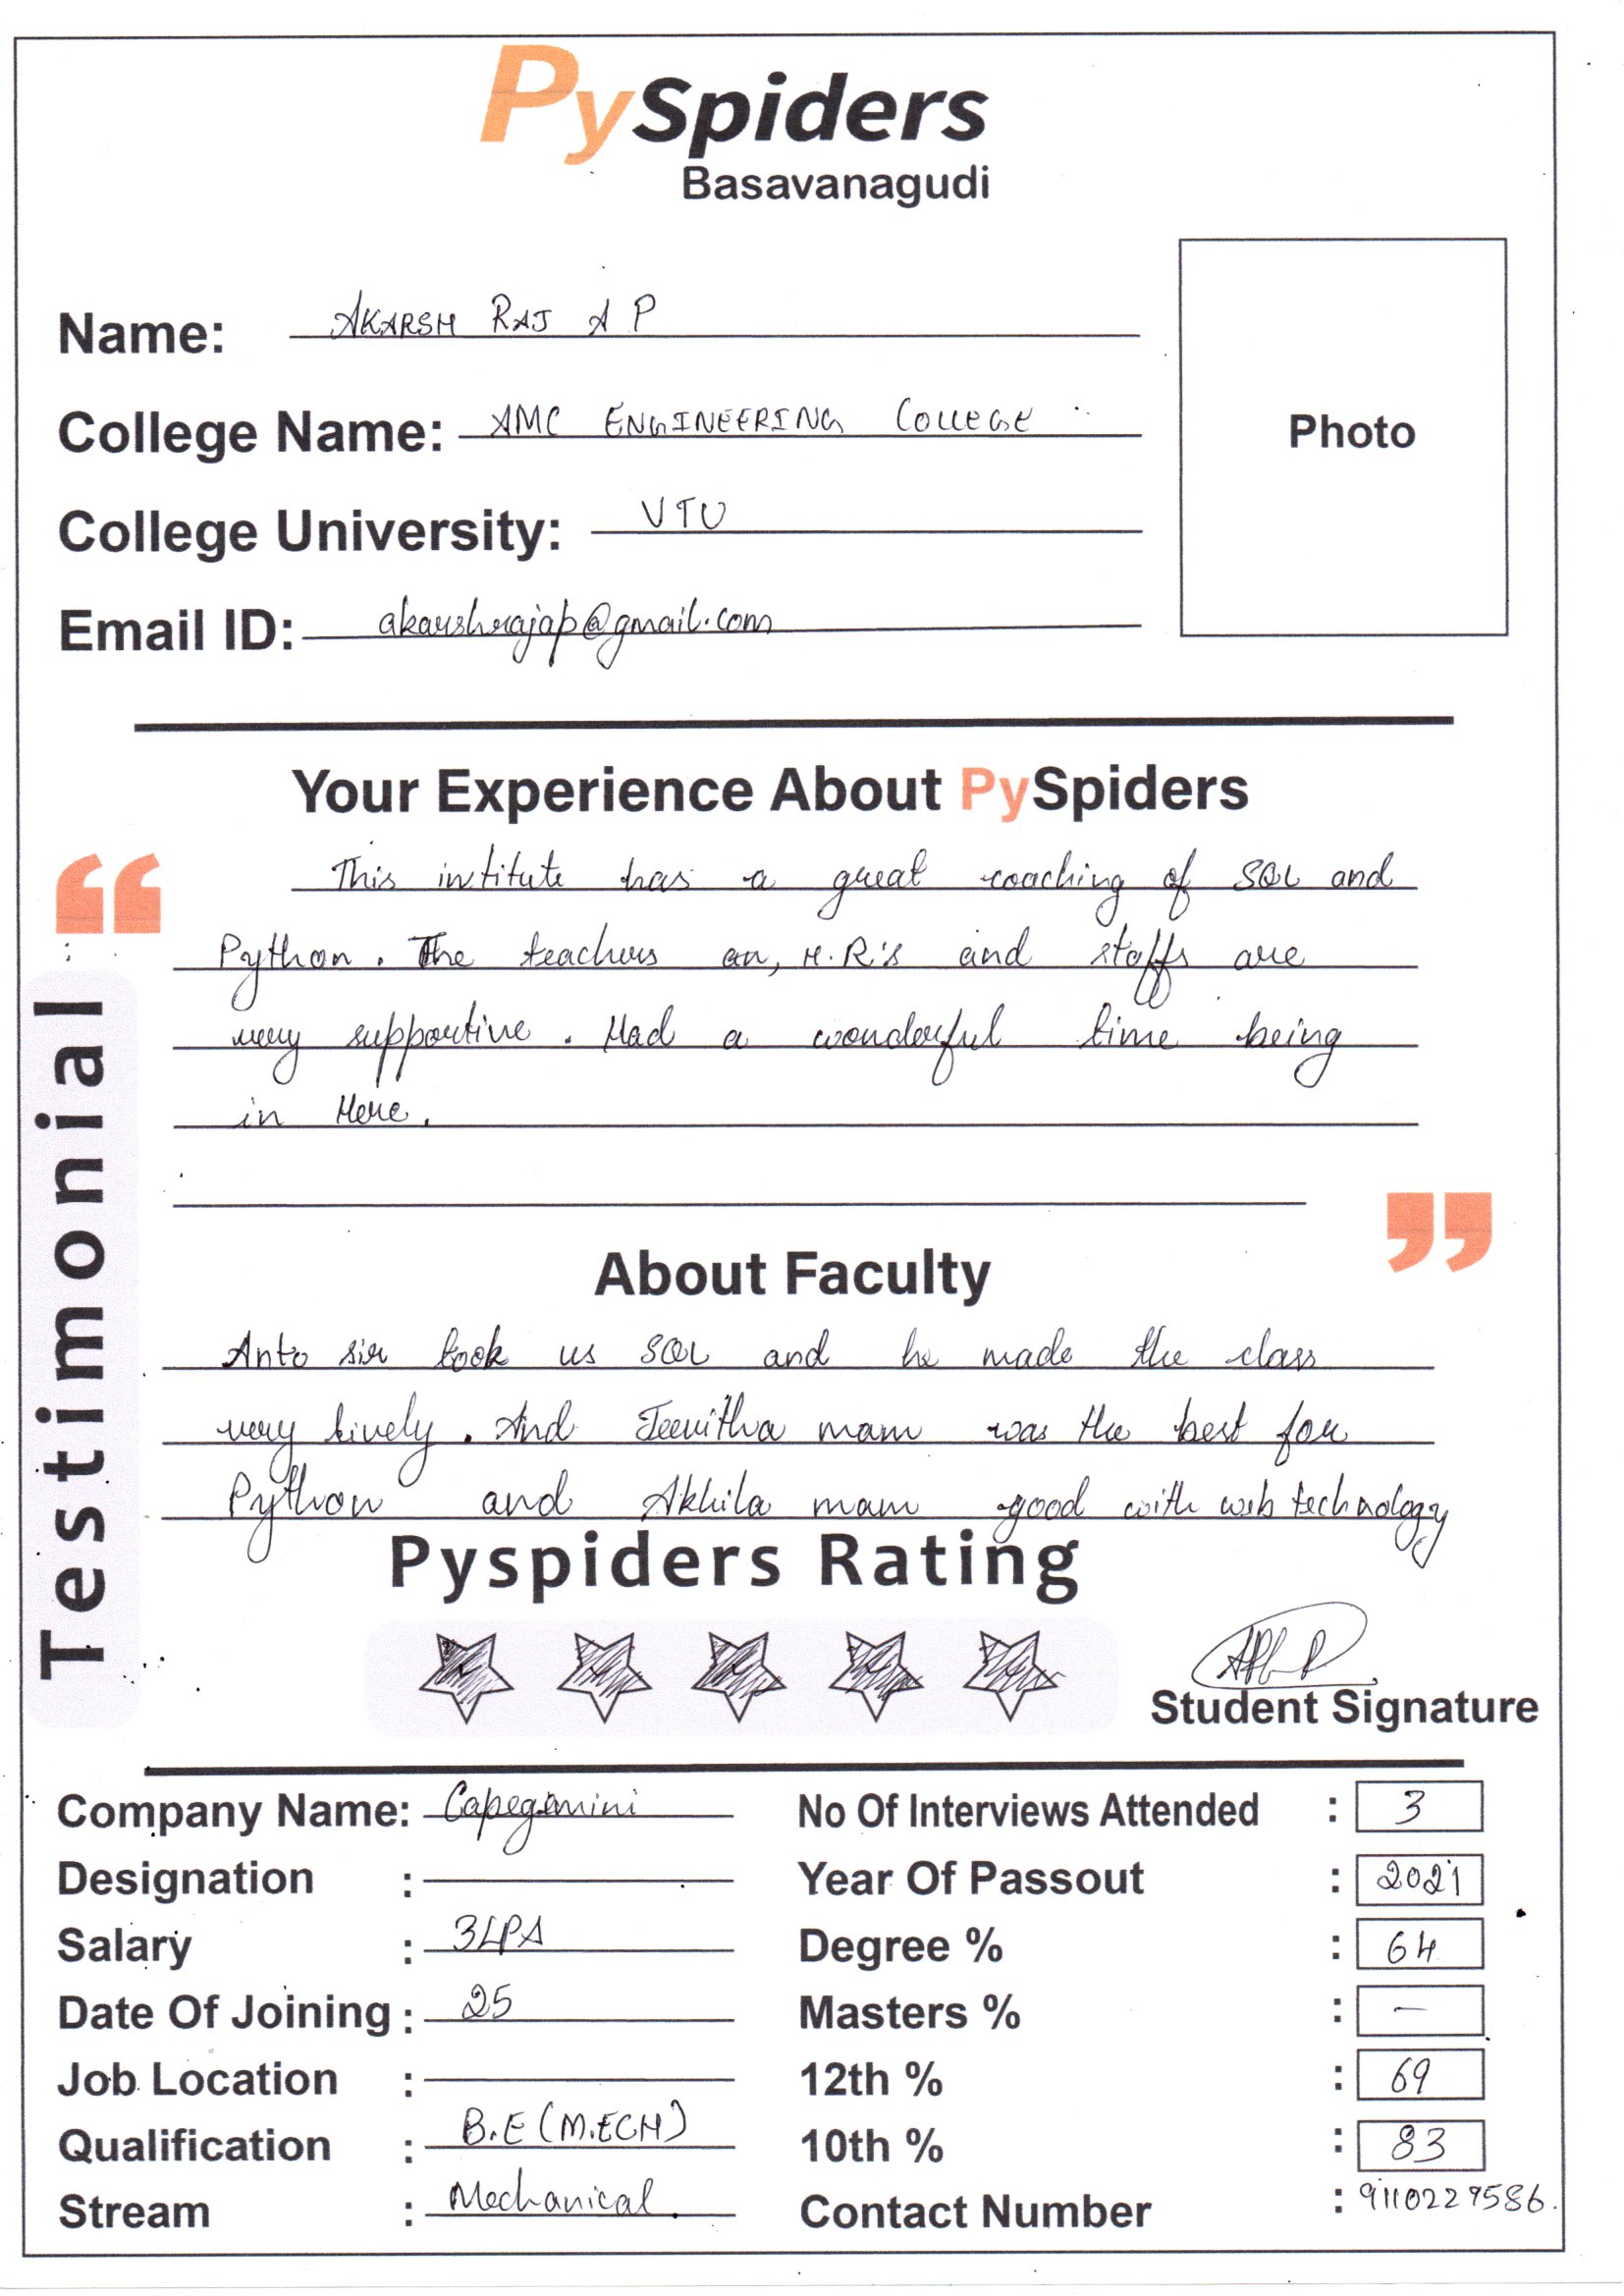 PySpiders
Basavanagudi
Name: AKARSH RAJ A P
College Name: AMC ENGINEERING COLLEGE
College University: VTU
Email ID: akarshrajap@gmail.com
Photo
Your Experience About PySpiders
This intitute has a great coaching of SQL and
Python. The teachers an, H.R's and staffs are
very supportive. Had a wonderful time being
in Here.
Testimonial
About Faculty
Anto sir took us SQL and he made the class
very lively. And Jeevitha mam was the best for
Python and Akhila mam good with web technology
Pyspiders Rating
Student Signature
Company Name: Capegemini No Of Interviews Attended : 3
Designation : Year Of Passout : 2021
Salary : 3LPA Degree % : 64
Date Of Joining : 25 Masters % : —
Job Location : 12th % : 69
Qualification : B.E (M.ECH) 10th % : 83
Stream : Mechanical. Contact Number : 9110227586.